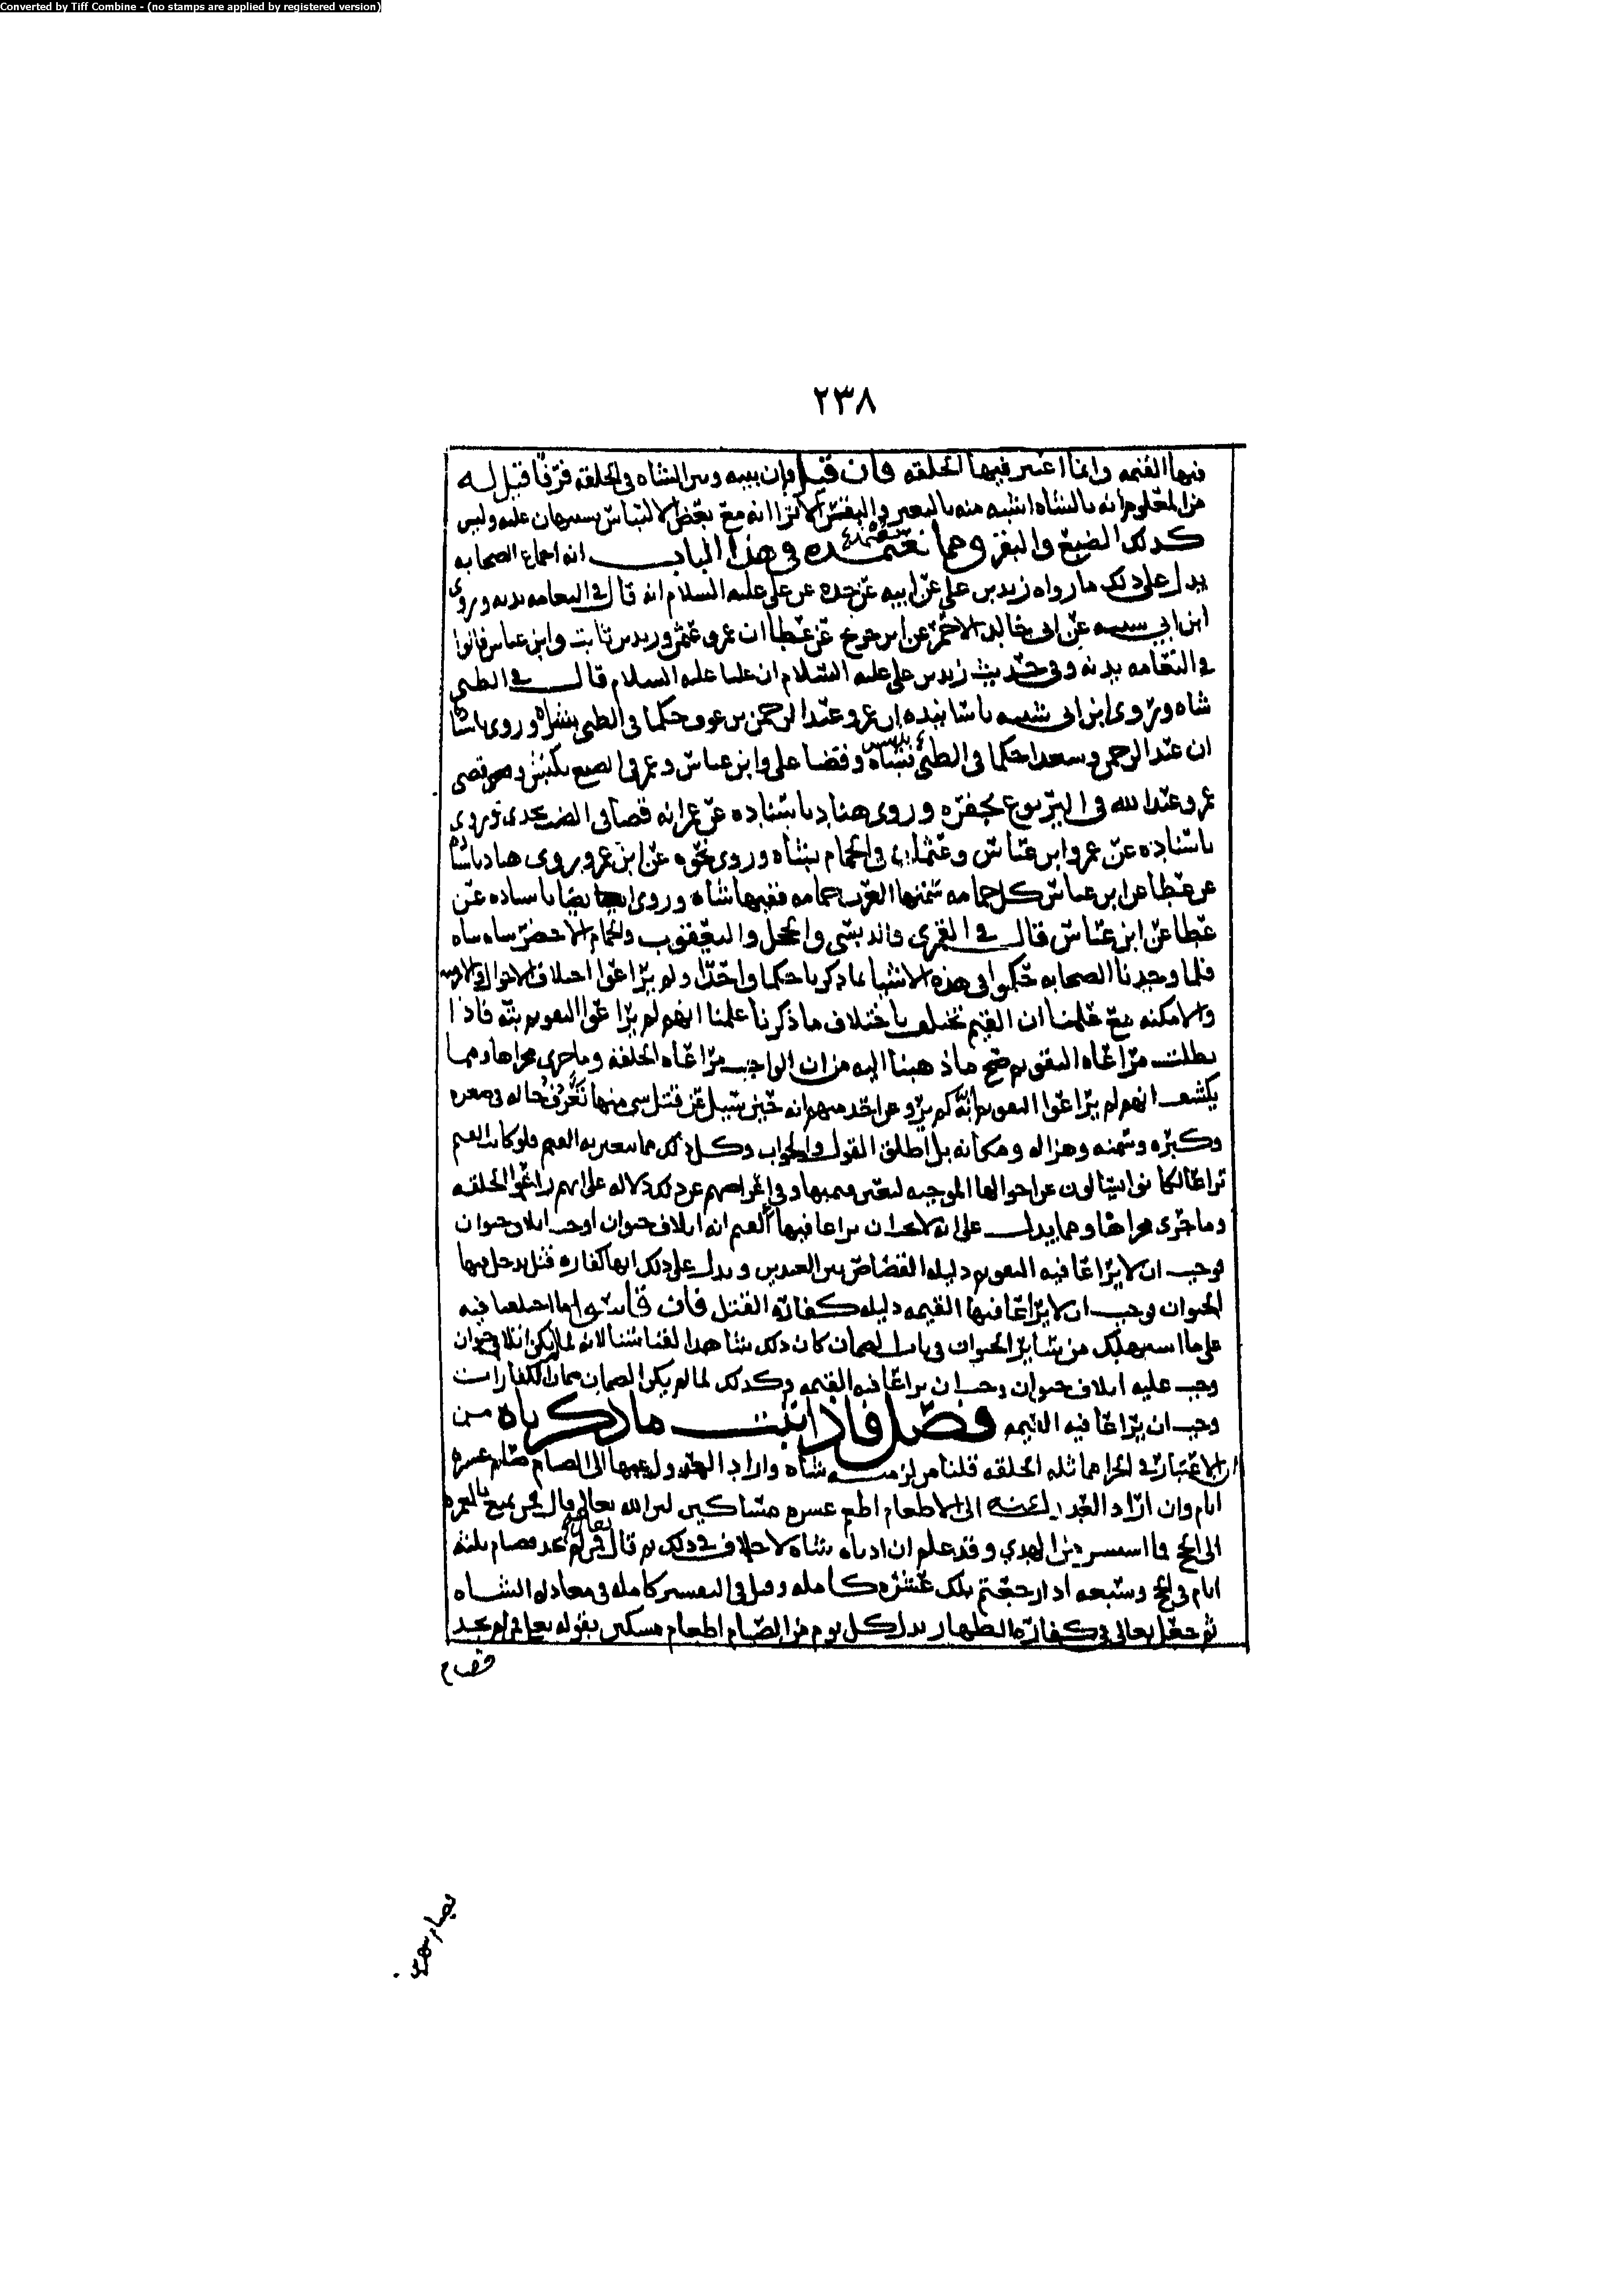 Converted by Tiff Combine - (no stamps are applied by registered version)
٢٣٨
فيها القيمه وانما اعتبر فيها الخلقه فان قيل فان بينه وبين الشاه في الخلقه فرقا قيل له
من المعلوم انه بالشاه اشبه منه بالبعير والبقر الا ترا انه مع بعض الالتباس يشبهان عليه وليس
كذلك الضبع والبقر ومما نعتمده في هذا الباب انه اجماع الصحابه
يدل على ذلك ما رواه زيد بن علي عن ابيه عن جده عن علي عليه السلام انه قال في النعامه بدنه وروى
ابن ابي شيبه عن ابي خالد الاحمر عن ابن جريج عن عطا ان عمر وعثمن وزيد بن ثابت وابن عباس قالوا
في النعامه بدنه وفي حديث زيد بن علي عليه السلام ان عليا عليه السلام قال في الظبي
شاه وروى ابن ابي شيبه باسانيده ان عمر وعبد الرحمن بن عوف حكما في الظبي بشاه وروى باسناده
ان عبد الرحمن وسعدا حكما في الظبي بشاه وقضا علي وابن عباس وعمر في الضبع بكبش وعمر قضى
عمر وعبد الله في اليربوع بجفره وروى هناد باسناده عن عمر انه قضا في الضب بجدي وروى
باسناده عن عمر وابن عباس وعثمان في الحمام بشاه وروى نحوه عن ابن عمر وروى هناد باسناده
عن عطا عن ابن عباس كل حمامه سمتها العرب حمامه ففيها شاه وروى ايضا باسناده عن
عطا عن ابن عباس قال في القمري والدبسي والحجل واليعقوب والحمام الاخضر شاه شاه
فلما وجدنا الصحابه حكموا في هذه الاشيا بما ذكرنا حكما واحدا ولم يراعوا اختلاف الاحوال والازمنه
والامكنه مع علمنا ان القيم تختلف باختلاف ما ذكرنا علمنا انهم لم يراعوا التقويم بته فاذا
بطلت مراعاه التقويم صح ما ذهبنا اليه من ان الواجب مراعاه الخلقه وما جرى مجراها ومما
يكشف انهم لم يراعوا التقويم انه لم يرو عن احد منهم انه حين سيل عن قتل شي منها تعرف حاله في صغره
وكبره وسمنه وهزاله ومكانه بل اطلق القول والجواب وكل ذلك مما تتغير به القيم فلو كانت القيم
تراعا لكانوا يسالون عن احوالها الموجبه لتغير قيمها وفي اعراضهم عن ذلك دلاله على انهم راعوا الخلقه
وما جرى مجراها ومما يدل على انه لا يجب ان يراعا فيها القيم انه اتلاف حيوان اوجب اتلاف حيوان
فوجب ان لا يراعا فيه التقويم دليله القصاص بين العبدين ويدل على ذلك انها كفاره قتل يدخل فيها
الحيوان فوجب ان لا يراعا فيها القيمه دليله كفاره القتل فان قاسوا ما اختلفنا فيه
على ما استهلك من سائر الحيوان في باب الضمان كان ذلك شاهدا لقياسنا لانه لما لم يكن اتلاف حيوان
وجب عليه اتلاف حيوان وجب ان يراعا فيه القيمه وكذلك لما لم يكن الضمان ضمان الكفارات
وجب ان يراعا فيه القيمه فصل فاذا ثبت ما ذكرناه من
ان الاعتبار في الجزا مماثله الخلقه قلنا من لزمته شاه واراد العدول عنها الى الصيام صام عشره
ايام وان اراد العدول عنه الى الاطعام اطعم عشره مساكين لان الله تعالى قال فمن تمتع بالعمره
الى الحج فما استيسر من الهدي وقد علم ان ادناه شاه لا خلاف في ذلك ثم قال تعالى فمن لم يجد فصيام ثلثه
ايام في الحج وسبعه اذا رجعتم تلك عشره كامله وقيل في التفسير كامله في معادله الشاه
ثم جعل تعالى في كفاره الظهار بدل كل يوم من الصيام اطعام مسكين بقوله تعالى فمن لم يجد
فصيام